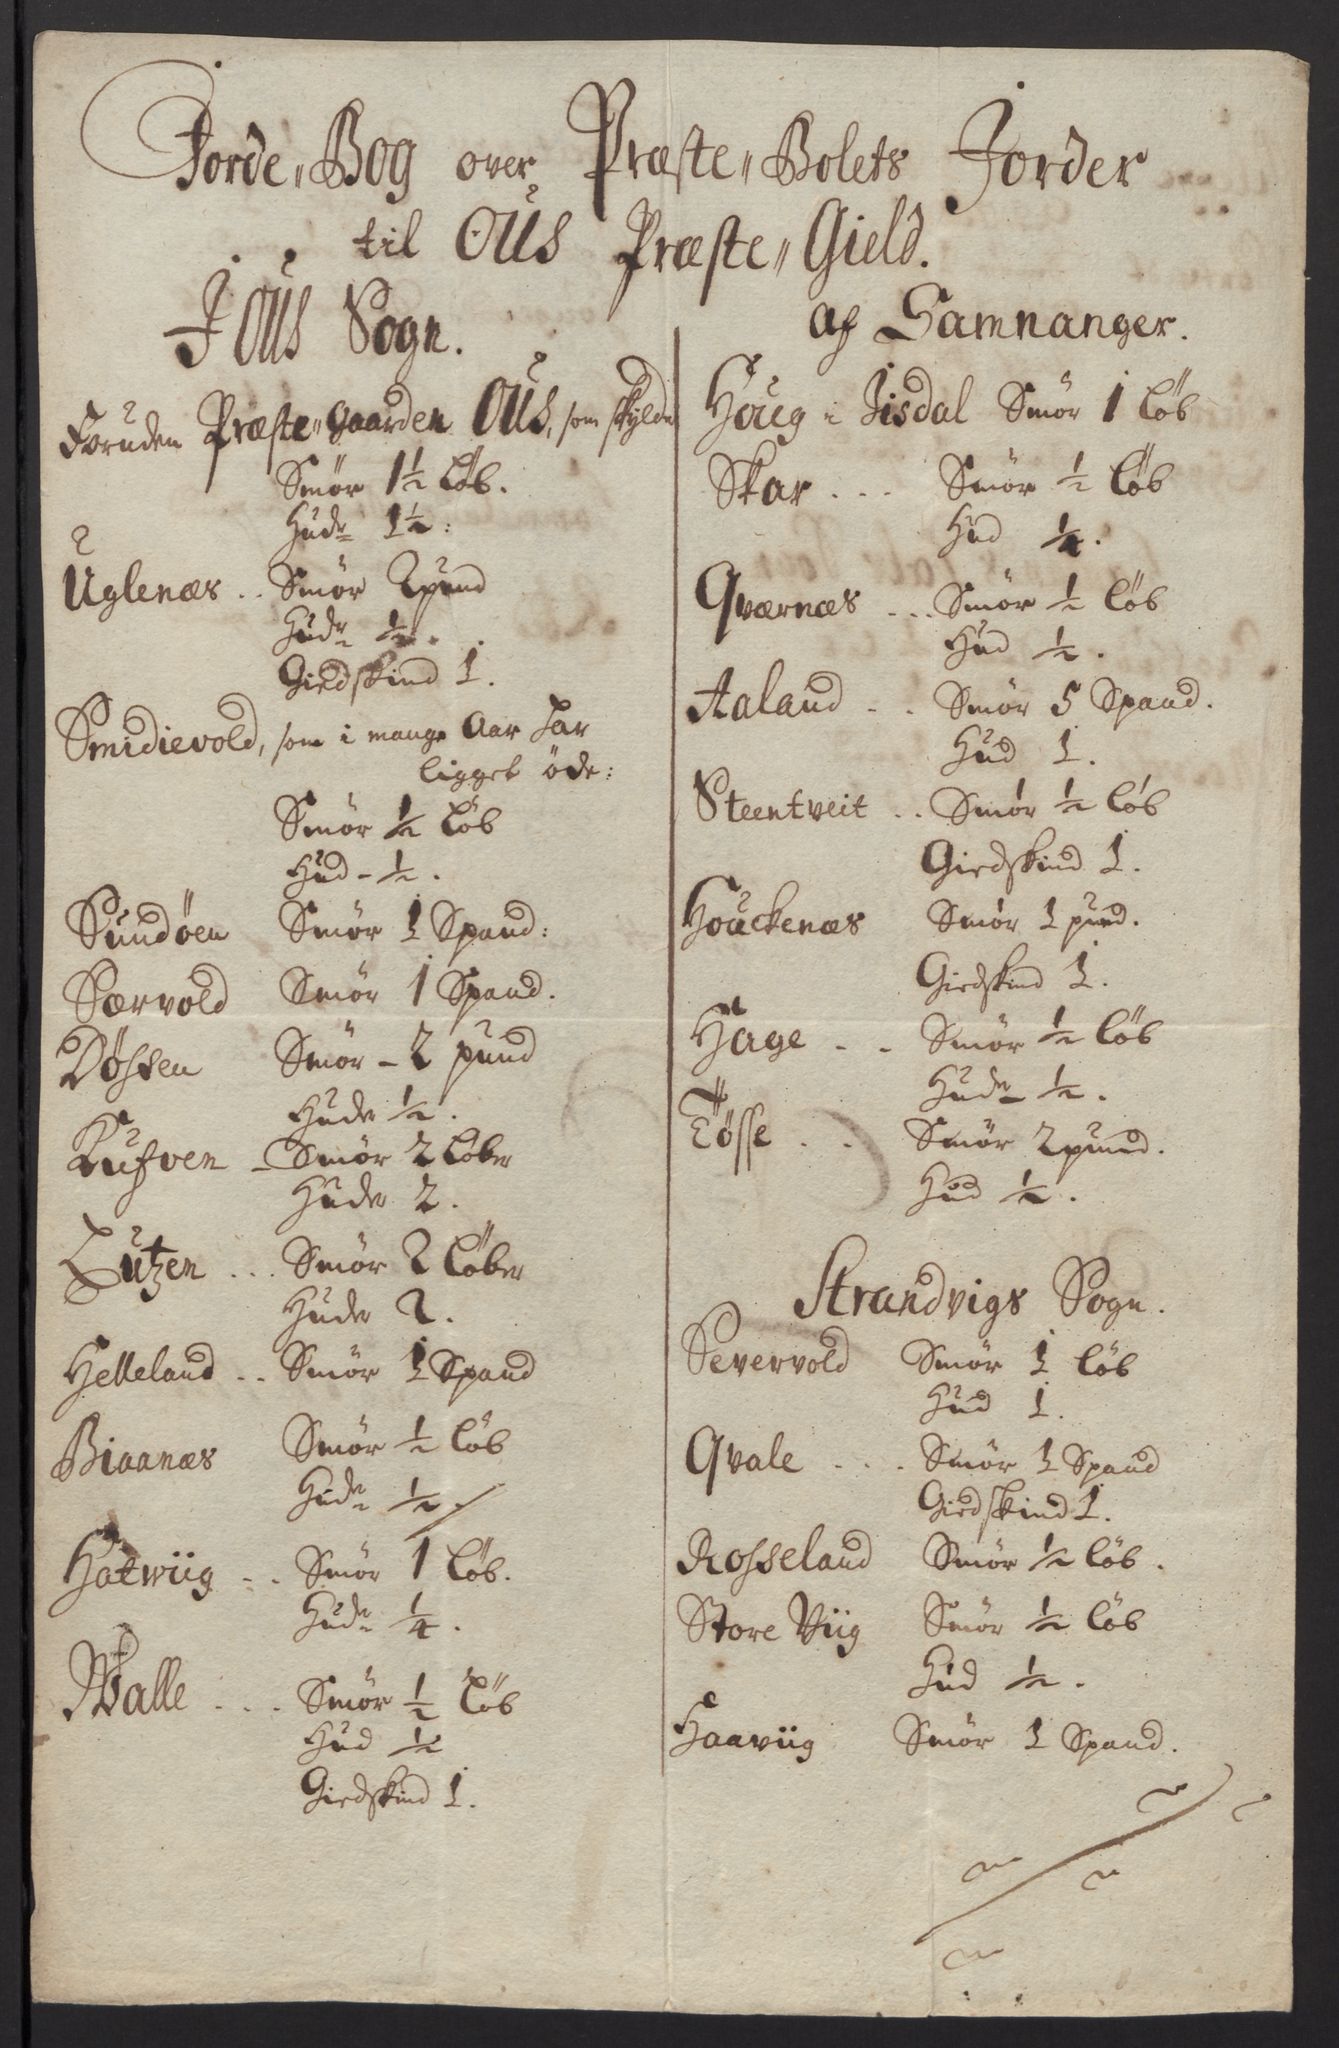 Jorde„Bog over Præste„Bolets Jorder
til Ous Præste„Gield.
I Ous Sogn.
Foruden Præste„gaarden Ous, som skylder
Smör 1½ Löb.
Huder 1½:
Uglenæs .. Smör 2 pund
Huder ½.
Giedskind 1.
Smidievold, som i mange Aar har
ligget öde:
Smör ½ Löb
Hud - ½.
Sundöen Smör 1 Spand:
Særvold Smör 1 Spand.
Dösten Smör - 2 pund
Hude ½.
Kufven - Smör 2 Löber
Huder 2.
Lutzen ... Smör 2 Löber
Huder 2.
Helleland .. Smör 1 Spand
Biaanæs Smör ½ Löb
Huder ½./
Hatwiig .. Smör 1 Löb.
Huder ¼.
Walle ... Smör ½ Löb
Hud ½
Giedskind 1.
af Samnanger.
Houg i Jisdal Smör 1 Löb
Skar ... Smör ½ Löb
Hud ¼.
Qværnæs ... Smör ½ Löb
Hud ½.
Aaland .. Smör 5 Spand.
Hud 1.
Steentveit .. Smör ½ Löb
Giedskind 1.
Houckenæs Smör 1 pund.
Giedskind 1.
Hage .. Smör ½ Löb
Huder ½.
Tösse .. Smör 2 pund.
Hud ½.
Strandvigs Sogn.
Severvold Smör 1 Löb
Hud 1.
Qvale ... Smör 1 Spand
Giedskind 1.
Rosseland Smör ½ Löb.
Store Viig Smör ½ Löb
Hud ½.
Haaviig Smör 1 Spand.